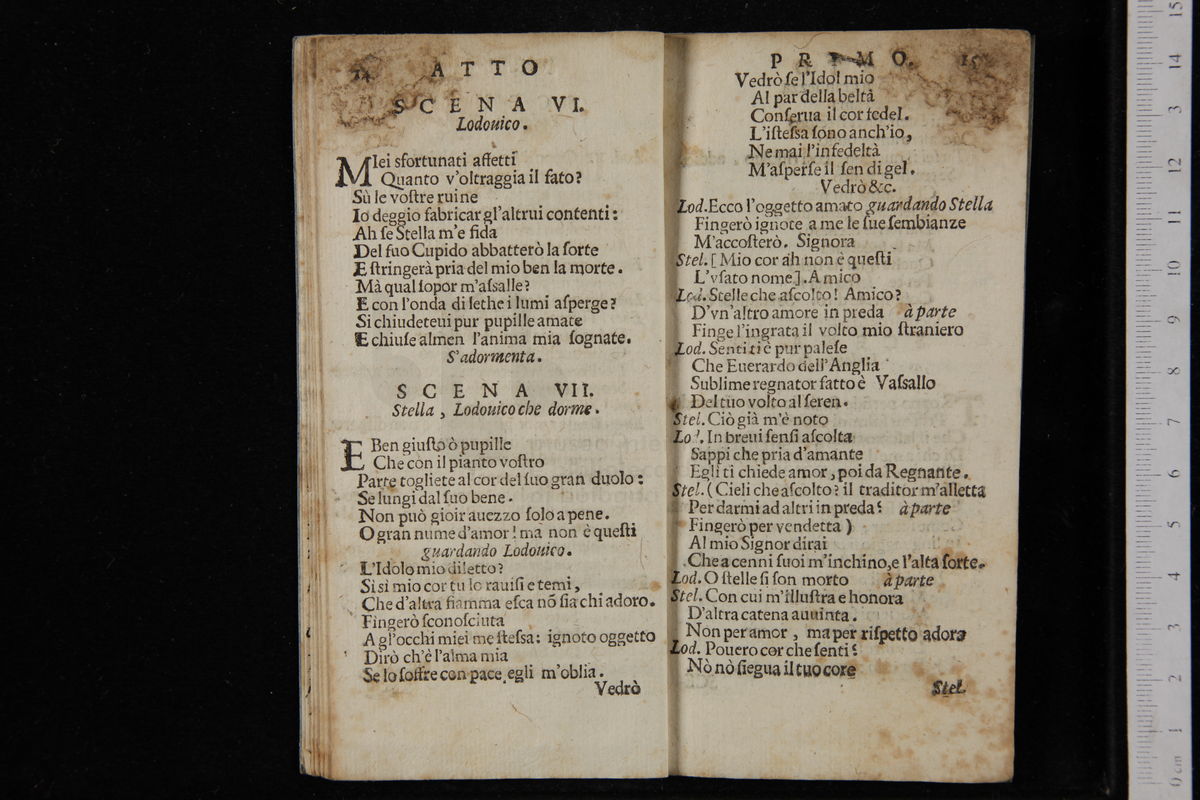 14 ATTO
SCENA VI.
Lodouico.
MIei sfortunati affetti
Quanto v'oltraggia il fato?
Sù le voſtre ruine
Io deggio fabricar gl'altrui contenti:
Ah ſe Stella m'e fida
Del ſuo Cupido abbatterò la ſorte
E ſtringerà pria del mio ben la morte.
Mà qual ſopor m'aſsalle?
E con l'onda di lethe i lumi aſperge?
Si chiudeteui pur pupille amate
E chiuſe almen l'anima mia ſognate.
S'adormenta.
SCENA VII.
Stella, Lodouico che dorme.
E Ben giuſto ò pupille
Che con il pianto voſtro
Parte togliete al cor del ſuo gran duolo:
Se lungi dal ſuo bene.
Non può gioir auezzo ſolo a pene.
O gran nume d'amor! ma non è queſti
guardando Lodouico.
L'Idolo mio diletto?
Si si mio cor tu lo rauiſi e temi,
Che d'altra fiamma eſca nõ ſia chi adoro.
Fingerò ſconoſciuta
A gl'occhi miei me ſteſsa: ignoto oggetto
Dirò ch'è l'alma mia
Se lo ſoffre con pace egli m'oblia.
Vedrò
PRIMO. 15
Vedrò ſe l'Idol mio
Al par della beltà
Conſerua il cor fedel.
L'iſteſsa ſono anch'io,
Ne mai l'infedeltà
M'aſperſe il ſen di gel.
Vedrò &c.
Lod. Ecco l'oggetto amato guardando Stella
Fingerò ignote a me le ſue ſembianze
M'accoſterò. Signora
Stel. [ Mio cor ah non è queſti
L'vſato nome ]. Amico
Lod. Stelle che aſcolto! Amico?
D'vn'altro amore in preda à parte
Finge l'ingrata il volto mio ſtraniero
Lod. Senti ti è pur paleſe
Che Euerardo dell'Anglia
Sublime regnator fatto è Vaſsallo
Del tuo volto al ſeren.
Stel. Ciò già m'è noto
Lod. In breui ſenſi aſcolta
Sappi che pria d'amante
Egli ti chiede amor, poi da Regnante.
Stel. ( Cieli che aſcolto? il traditor m'alletta
Per darmi ad altri in preda? à parte
Fingerò per vendetta )
Al mio Signor dirai
Che a cenni ſuoi m'inchino, e l'alta ſorte.
Lod. O ſtelle ſi ſon morto à parte
Stel. Con cui m'illuſtra e honora
D'altra catena auuinta.
Non per amor, ma per riſpetto adora
Lod. Pouero cor che ſenti?
Nò nò ſiegua il tuo core
Stel.